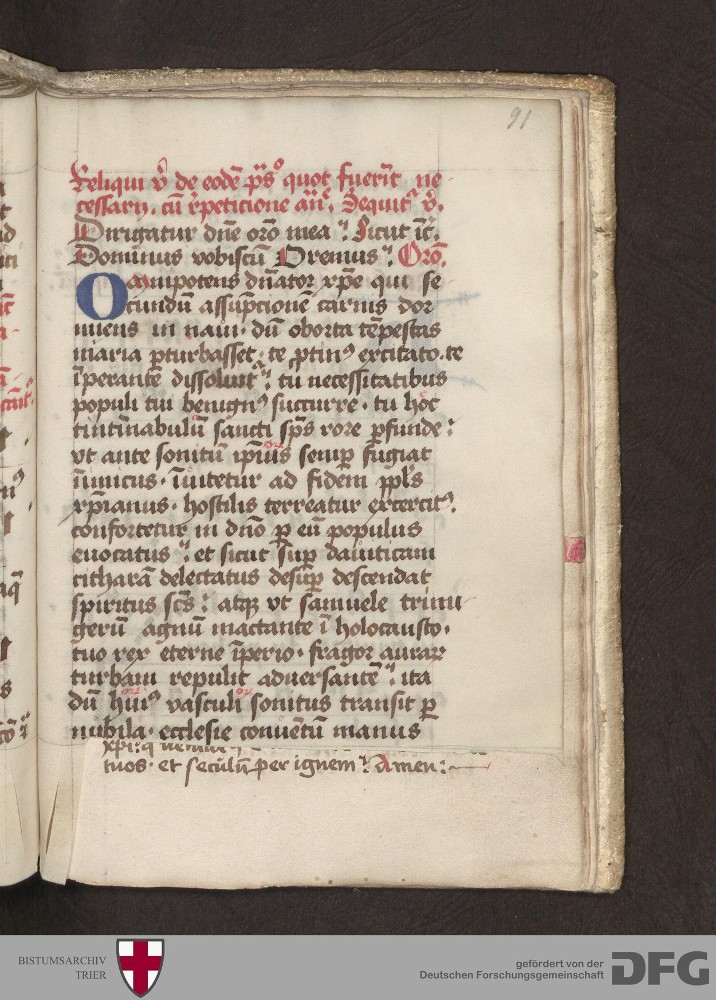 91
Reliqui v̄ de eodē p̄s° quot fuerīt ne-
cessarij. cū r̄peticione añe. Sequit᷑ v̄.
Dirigatur dn̄e orō mea. Sicut īc̄.
Dominus vobiscū Oremus. Orō.
Omnipotens dn̄ator xp̄e qui se
cundū assūpcionē carnis dor
miens in naui. dū oborta tēpestas
maria ꝑturbasset. te ꝓtinꝰ excitato. te
īperante dissoluit᷑. tu necessitatibus
populi tui benignꝰ succurre. tu hoc
tintīnabulū sancti sp̄s rore ꝑfunde:
vt ante sonitū ip̄ius semꝑ fugiat
inimicus. īuitetur ad fidem ppl̄s
xp̄ianus. hostilis terreatur exercitꝰ.
confortetur in dn̄o ꝑ eū populus
euocatus. et sicut suꝑ dauiticam
citharā delectatus desuꝑ descendat
spiritus sc̄s: atqꝫ vt samuele trini
gerū agnū mactante ī holocausto.
tuo rex eterne īperio. fragor aurarꝝ
turbam repulit aduersantē. ita
dū huiꝰ vasculi sonitus transit ꝑ
nubila. ecclesie conuētū manus
tuos. et secūlū per ignem. Amen:
BISTUMSARCHIV
TRIER
gefördert von der
Deutschen Forschungsgemeinschaft
DFG